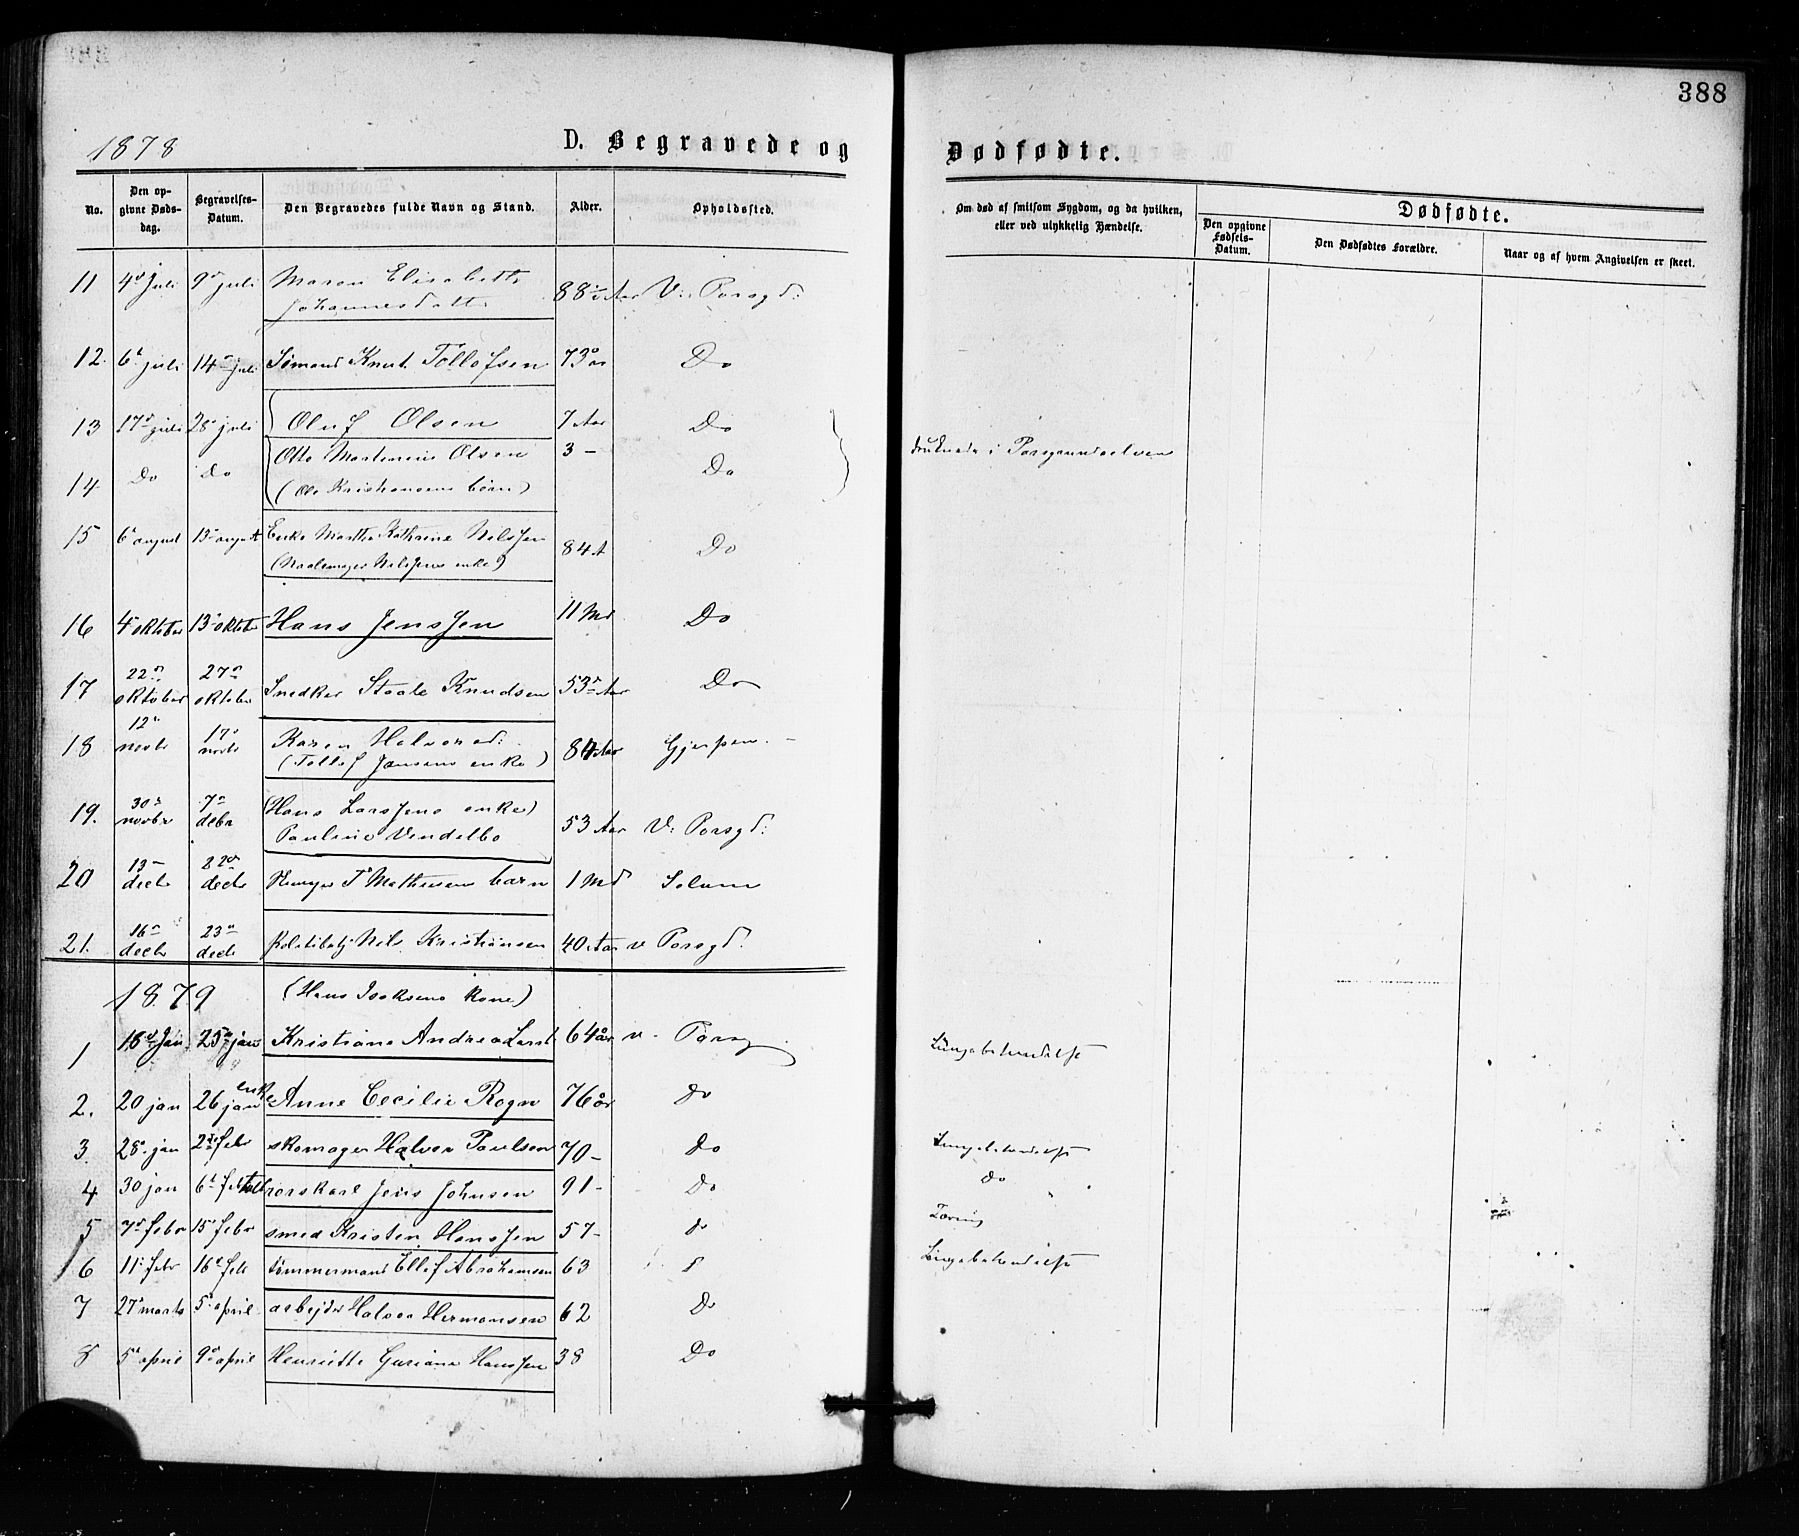 388
1878
D. Begravede og
Dødfødte.
No.
Den opgivne Dødsdag.
Begravelses-Datum.
Den Begravedes fulde Navn og Stand.
Alder.
Opholdssted.
Om død af smitsom Sygdom, og da hvilken,
eller ved ulykkelig Hændelse.
Dødfødte.
Den opgivne Fødsels-Datum.
Den Dødfødtes Forældre.
Naar og af hvem Angivelsen er skeet.
11 4d Juli 9d juli Maren Elisabeth
Johannesdatt. 88 Aar V: Porsgd:
12. 6t juli 14 juli Sømand Knut Tollofsen 73 aar Do
13 17d juli 28 juli Oluf Olsen 7 Aar Do
14 Do Do Otto Martinius Olsen 3 - Do
(Ole Kristiansens børn) druknede i Porsgrundselven
15 6t august 13 august Enke Marthe Kathrine Nilssen 84 A Do
(Naalemager Nilssens enke)
16 4 oktober 13 oktbr Hans Jenssen 11 Md Do
17 22n oktober 27n oktober Snedker Staale Knudsen 53 Aar Do
18 12 novbr 17 novbr Karen Halvorsd: 84 Aar Gjerpen. -
(Tollef Jansens enke)
19. 30 novbr 7n debr (Hans Larssens enke)
Pauline Vendelbo 53 Aar V: Porsgd:
20 13 decbr 22n decbr T Mathisens barn 1 Md Solum
21. 16n decbr 23n decbr Politibetj Nils Kristiansen 40 Aar v Porsgd.
1879 (Hans Isaksens kone)
1 18d Jan 25n jan Kristiane Andrea Larsd 64 år v. Porsg. Lungebetændelse
2. 20 jan 26 jan enke Anne Cecilie Rogn 76 år do
3. 28. jan 2 febr skomager Halvor Paulsen 70- Do Lungebetændelse
4 30 jan 6t feb Jens Johnsen 91- Do Do
5 7d febr 15 febr smed Kristen Hanssen 57- do Tæring
6 11 febr 16d feb tømmermand Ellef Abrahamsen 63 Lungebetændelse
7 27 marts 5 april arbejder Halvor Hermansen 62 Do
8 5t april 9d april Henriette Guriane Hanssen 38 Do